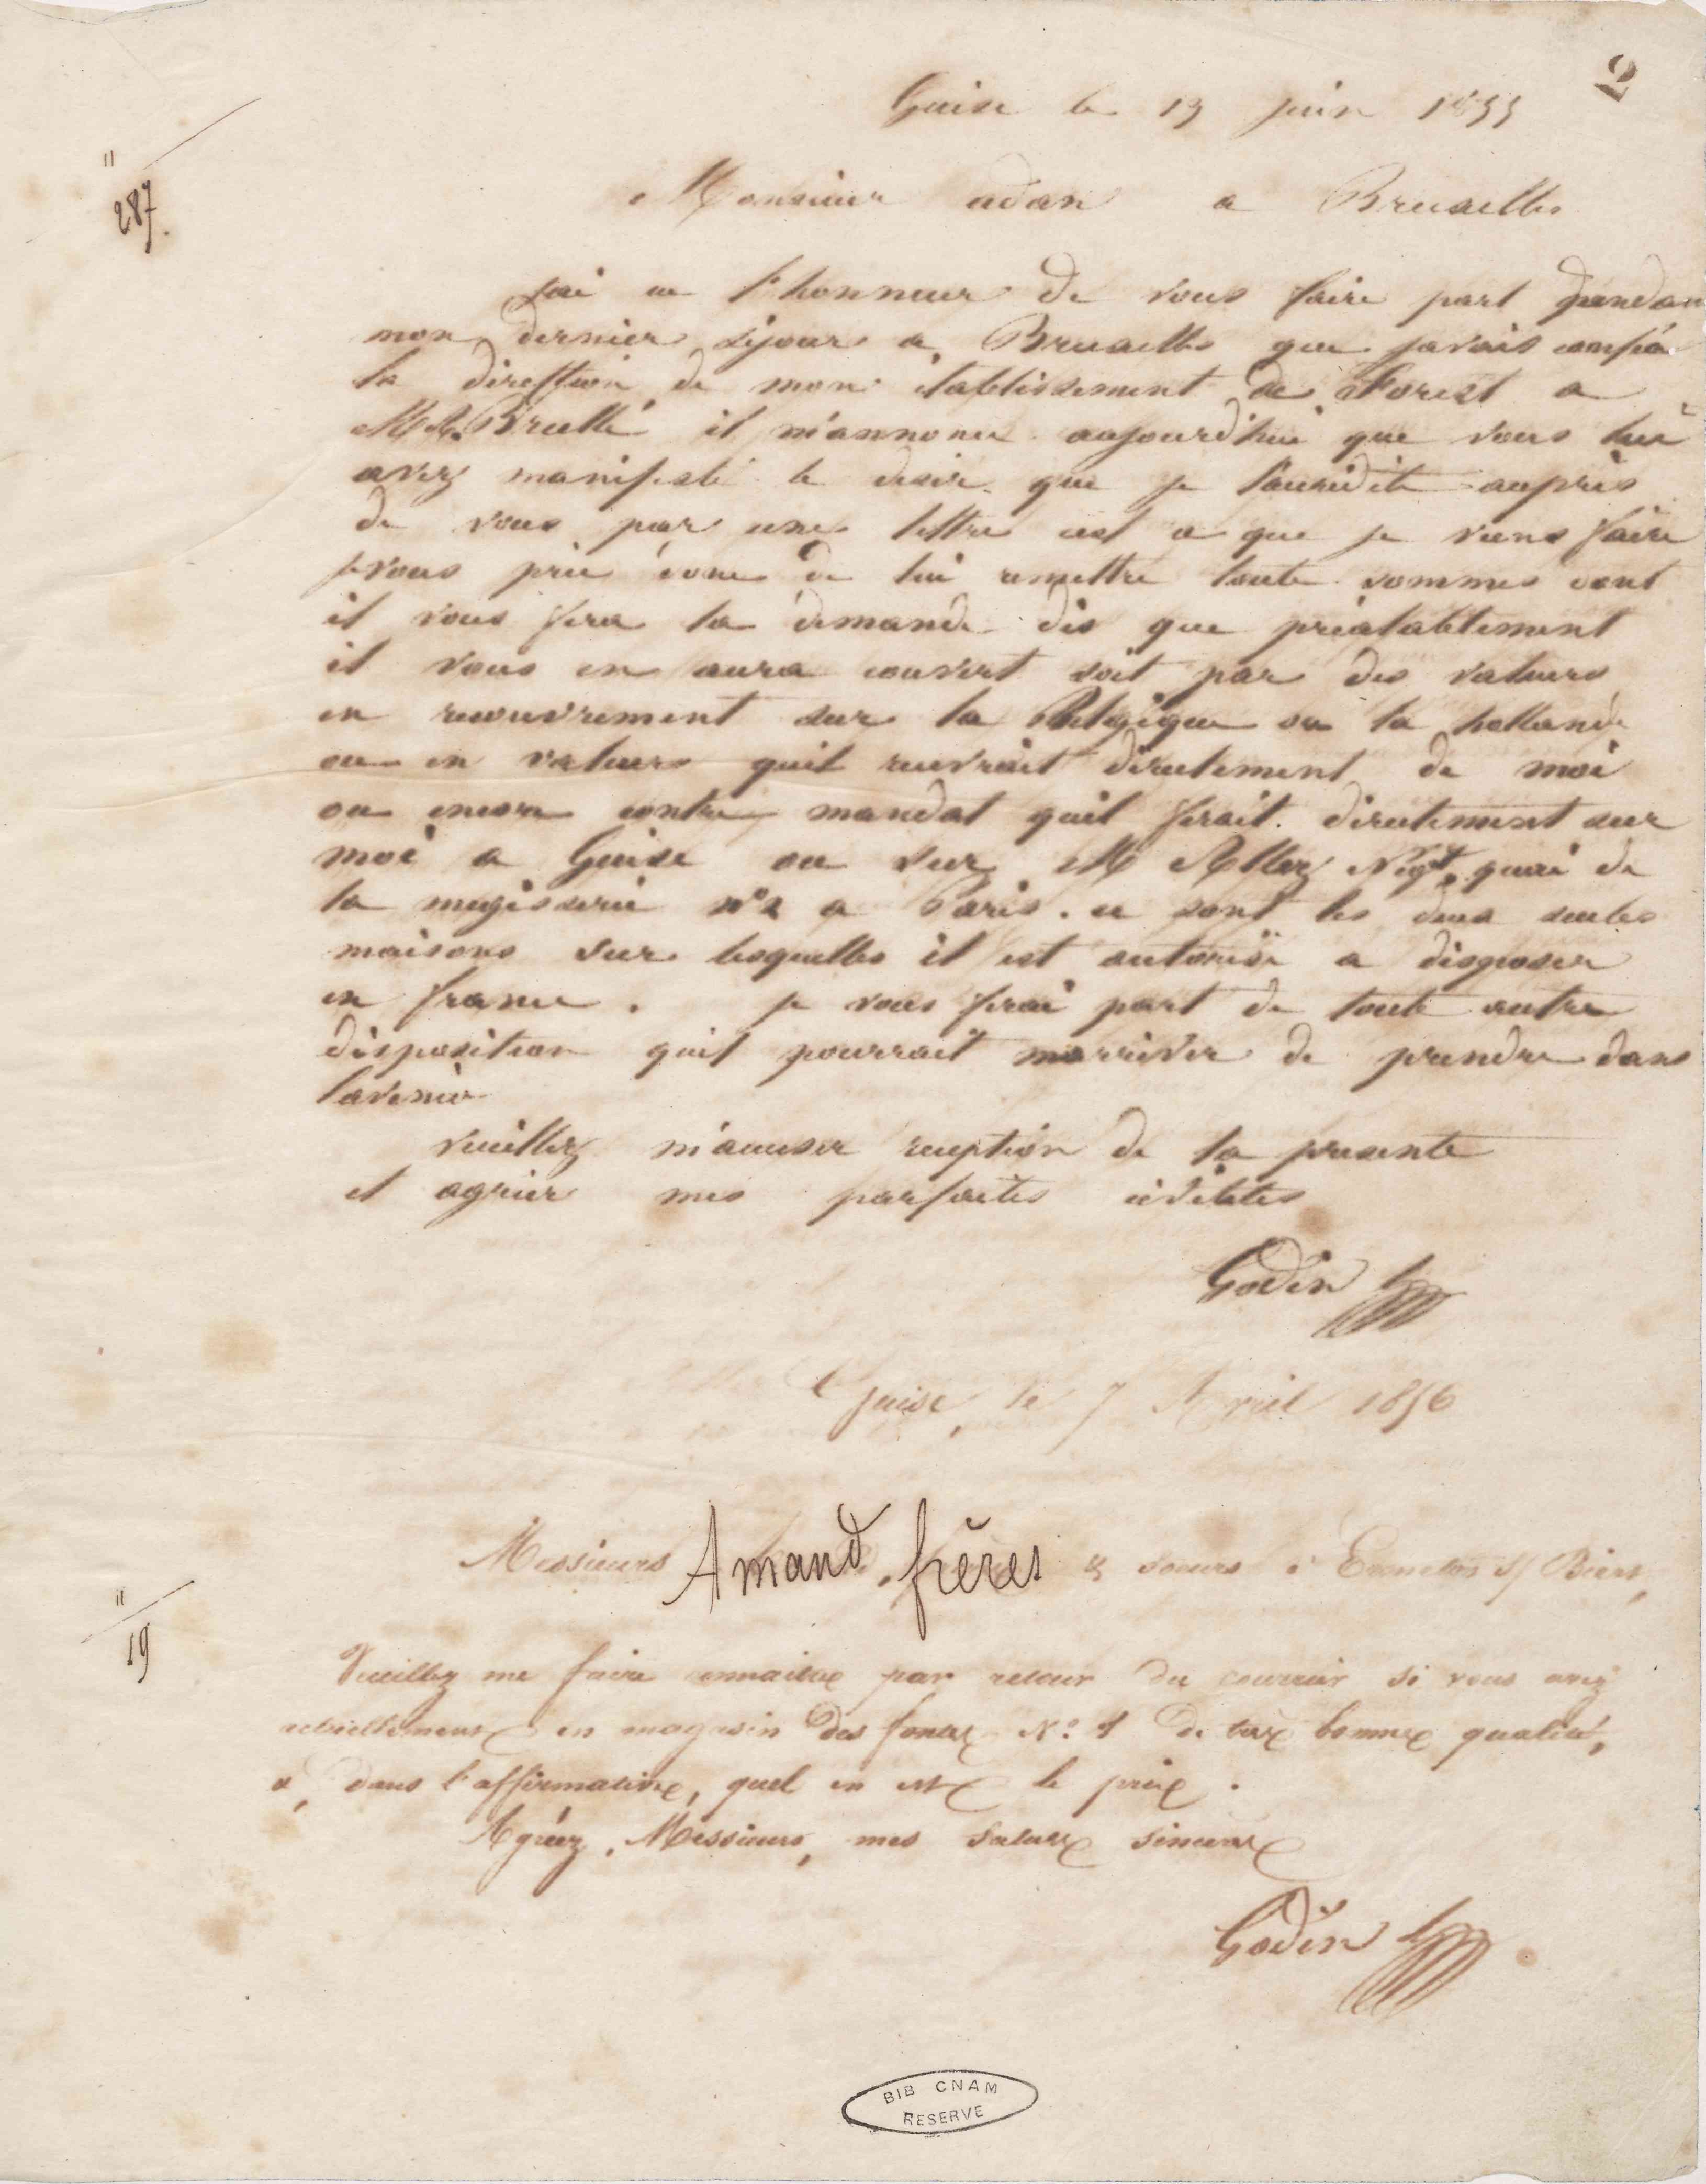 2
Guise le 19 juin 1855
287.
Monsieur adan a Bruxelles
jai eu l'honneur de vous faire part pendan
mon dernier séjour a Bruxelles que javais confié
la direction de mon établissement de Forest a
M Brullé il m'annonce aujourd'hui que vous lui
avez manifesté le desir que je l'accrédite auprès
de vous par une lettre cest ce que je viens faire
je vous prie donc de lui remettre toute sommes dont
il vous fera la demande dès que préalablement
il vous en aura couvert soit par des valeurs
en recouvrement sur la Belgique ou la hollande
ou en valeurs quil recevrait directement de moi
ou encore contre mandat quil ferait directement sur
moi a Guise ou sur M Allez Negt. quai de
la megisserie n° 2 a Paris. ce sont les deux seules
maisons sur lesquelles il est autorisé a disposer
en france. je vous ferai part de toute autre
disposition quil pourrait marriver de prendre dans
lavenir
veuillez m'accuser reception de la presente
et agréer mes parfaites civilités
Godin
Guise, le 7 Avril 1856
Messieurs Amand, frères & soeurs à s/ Biert,
19
Veuillez me faire connaitre par retour du courrier si vous avez
actuellement en magasin des fontes N° 1 de tres bonne qualité,
&, dans l'affirmative, quel en est le prix.
Agréez, Messieurs, mes saluts sincères
Godin
BIB CNAM
RESERVE